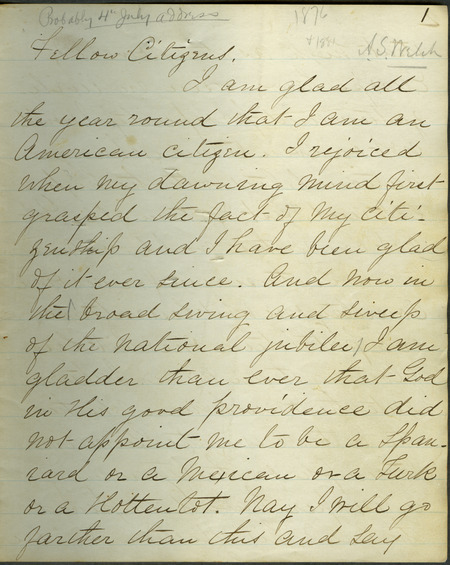 Probably 4th July address 1876 1
& 1881 A. S. Welch
Fellow Citizens.
I am glad all
the year round that I am an
American citizen. I rejoiced
when my dawning mind first
grasped the fact of my citi-
zenship and I have been glad
of it ever since. And now in
the broad swing and sweep
of the national jubilee, I am
gladder than ever that God
in His good providence did
not appoint me to be a Span-
iard or a Mexican or a Turk
or a Hottentot. Nay I will go
farther than this and say